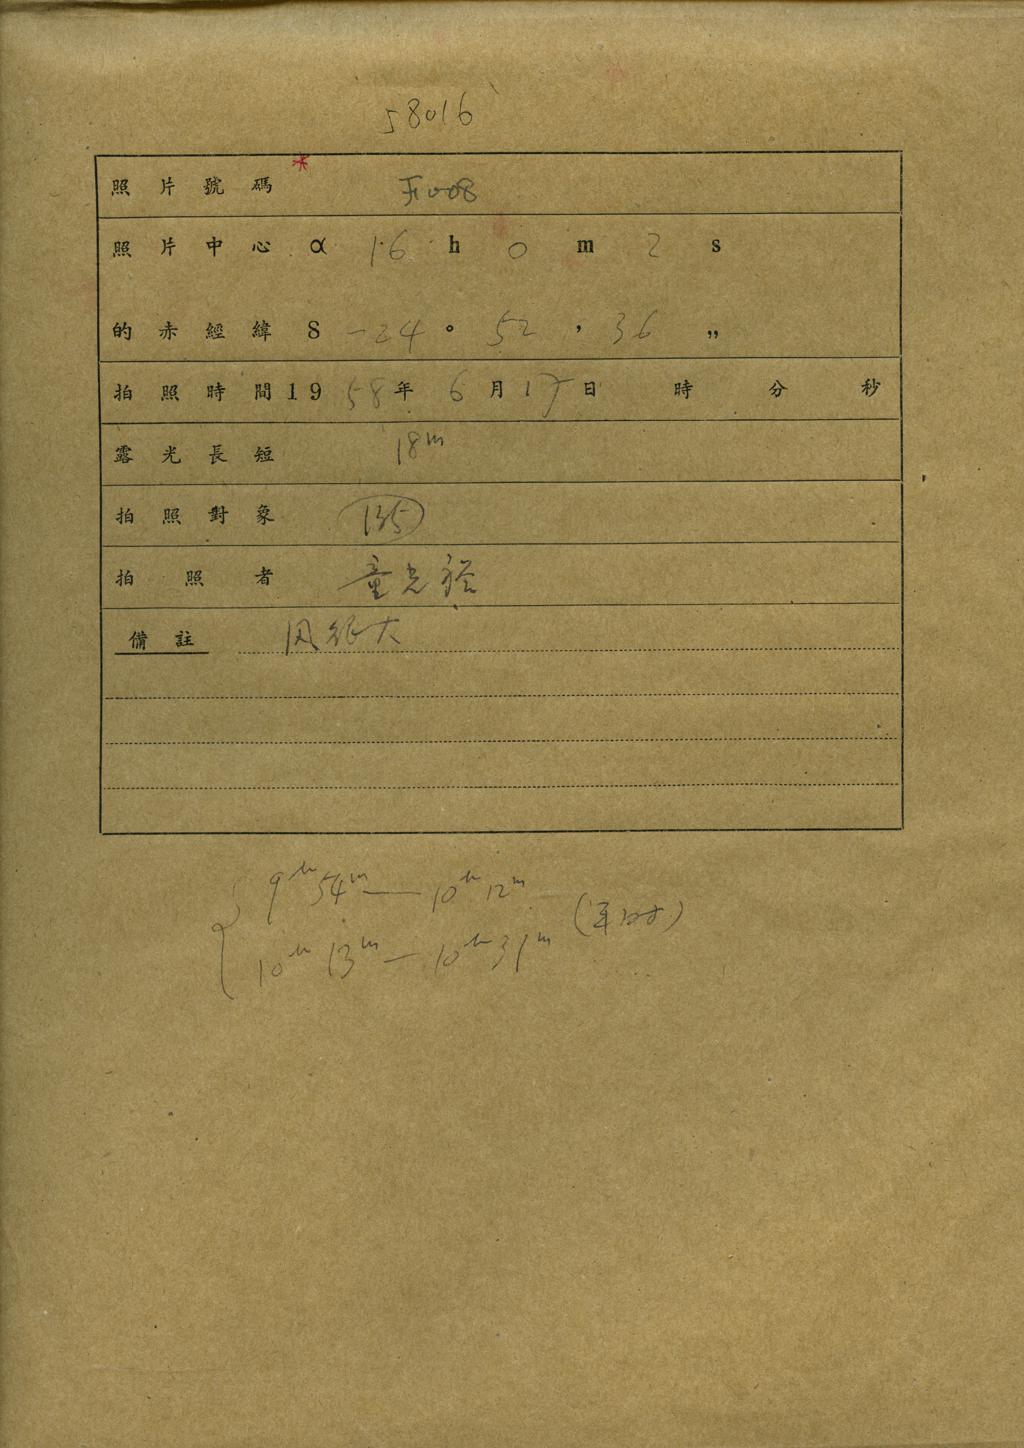 58016
照片號碼
照片中心 α 16 h 0 m 2 s
的赤經緯 δ -24 ° 52 ' 36 "
拍照時間 1958年 6月17日 時 分 秒
露光長短 18m
拍照對象 135
拍照者 童光
備註 風很大
9h 54m — 10h 12m
10h 13m — 10h 31m